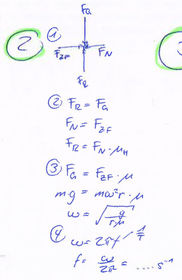 2
① F_G
F_ZF F_N
F_R
② F_R = F_G
F_N = F_ZF
F_R = F_N · μ_H
③ F_G = F_ZF · μ
mg = mω²r · μ
ω = √(g/(r·μ))
④ ω = 2πf 1/T
f = ω/2π = .... s⁻¹